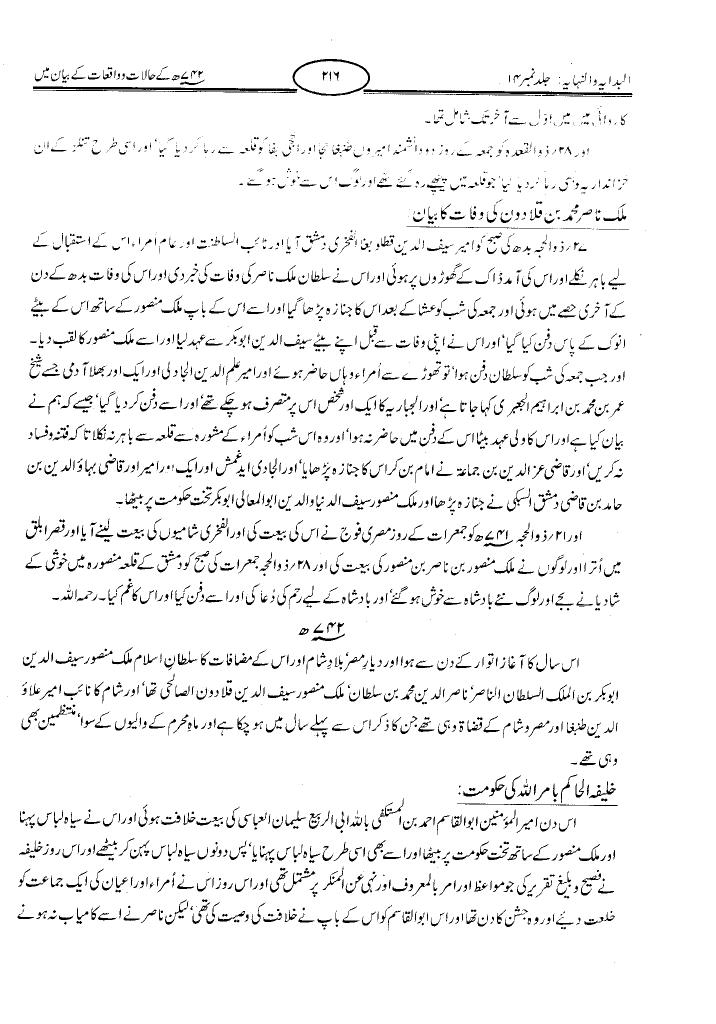 البدایہ والنہایہ: جلد نمبر ۱۴
۲۱۶
۷۴۲ھ کے حالات و واقعات کے بیان میں
کاروائی میں میں اوّل سے آخر تک شامل تھا۔
اور ۲۸/ ذوالقعدہ کو جمعہ کے روز دو دانشمند امیروں طنبغا حجا اور الحجی بغا کو قلعہ سے رہا کر دیا گیا' اور اسی طرح تنکز کے ان
خزانداریہ وہی رہا کر دیا گیا' جو قلعہ میں پیچھے رہ گئے تھے اور لوگ اس سے خوش ہو گئے۔
ملک ناصر محمد بن قلادون کی وفات کا بیان:
۲۷/ ذوالحجہ بدھ کی صبح کو امیر سیف الدین قطلوبغا الفخری دمشق آیا اور نائب السلطنت اور عام امراء اس کے استقبال کے
لیے باہر نکلے اور اس کی آمد ڈاک کے گھوڑوں پر ہوئی اور اس نے سلطان ملک ناصر کی وفات کی خبر دی اور اس کی وفات بدھ کے دن
کے آخری حصے میں ہوئی اور جمعہ کی شب کو عشا کے بعد اس کا جنازہ پڑھا گیا اور اسے اس کے باپ ملک منصور کے ساتھ اس کے بیٹے
انوک کے پاس دفن کیا گیا' اور اس نے اپنی وفات سے قبل اپنے بیٹے سیف الدین ابوبکر سے عہد لیا اور اسے ملک منصور کا لقب دیا۔
اور جب جمعہ کی شب کو سلطان دفن ہوا' تو تھوڑے سے اُمراء وہاں حاضر ہوئے اور امیر علم الدین الجاولی اور ایک اور بھلا آدمی جسے شیخ
عمر بن محمد بن ابراہیم الجعبری کہا جاتا ہے' اور الجباریہ کا ایک اور شخص اس پر متصرف ہو چکے تھے' اور اسے دفن کر دیا گیا' جیسے کہ ہم نے
بیان کیا ہے اور اس کا ولی عہد بیٹا اس کے دفن میں حاضر نہ ہوا' اور وہ اس شب کو اُمراء کے مشورہ سے قلعہ سے باہر نہ نکلا تا کہ فتنہ و فساد
نہ کریں' اور قاضی عز الدین بن جماعۃ نے امام بن کر اس کا جنازہ پڑھایا' اور الجادی ایدغمش اور ایک اور امیر اور قاضی بہاؤ الدین بن
حامد بن قاضی دمشق السبکی نے جنازہ پڑھا اور ملک منصور سیف الدنیا والدین ابو المعالی ابوبکر تخت حکومت پر بیٹھا۔
اور ۲۱/ ذوالحجہ ۷۴۱ھ کو جمعرات کے روز مصری فوج نے اس کی بیعت کی اور الفخری شامیوں کی بیعت لینے آیا اور قصر ابلق
میں اُترا اور لوگوں نے ملک منصور بن ناصر بن منصور کی بیعت کی اور ۲۸/ ذوالحجہ جمعرات کی صبح کو دمشق کے قلعہ منصورہ میں خوشی کے
شادیانے بجے اور لوگ نئے بادشاہ سے خوش ہو گئے' اور بادشاہ کے لیے رحم کی دُعا کی اور اسے دفن کیا اور اس کا غم کیا۔ رحمہ اللہ۔
۷۴۲ھ
اس سال کا آغاز اتوار کے دن سے ہوا اور دیارِ مصر' بلادِ شام اور اس کے مضافات کا سلطانِ اسلام ملک منصور سیف الدین
ابوبکر بن الملک السلطان الناصر' ناصر الدین محمد بن سلطان' ملک منصور سیف الدین قلادون الصالحی تھا' اور شام کا نائب امیر علاؤ
الدین طنبغا اور مصر و شام کے قضاۃ وہی تھے جن کا ذکر اس سے پہلے سال میں ہو چکا ہے اور ماہِ محرم کے والیوں کے سوا' منتظمین بھی
وہی تھے۔
خلیفہ الحاکم بامر اللہ کی حکومت:
اس دن امیر المؤمنین ابو القاسم احمد بن المستکفی باللہ ابی الربیع سلیمان العباسی کی بیعت خلافت ہوئی اور اس نے سیاہ لباس پہنا
اور ملک منصور کے ساتھ تخت حکومت پر بیٹھا اور اسے بھی اسی طرح سیاہ لباس پہنایا' پس دونوں سیاہ لباس پہن کر بیٹھے اور اس روز خلیفہ
نے فصیح و بلیغ تقریر کی جو مواعظ اور امر بالمعروف اور نہی عن المنکر پر مشتمل تھی اور اس روز اس نے اُمراء اور اعیان کی ایک جماعت کو
خلعت دیئے اور وہ جشن کا دن تھا اور اس ابو القاسم کو اس کے باپ نے خلافت کی وصیت کی تھی' لیکن ناصر نے اسے کامیاب نہ ہونے